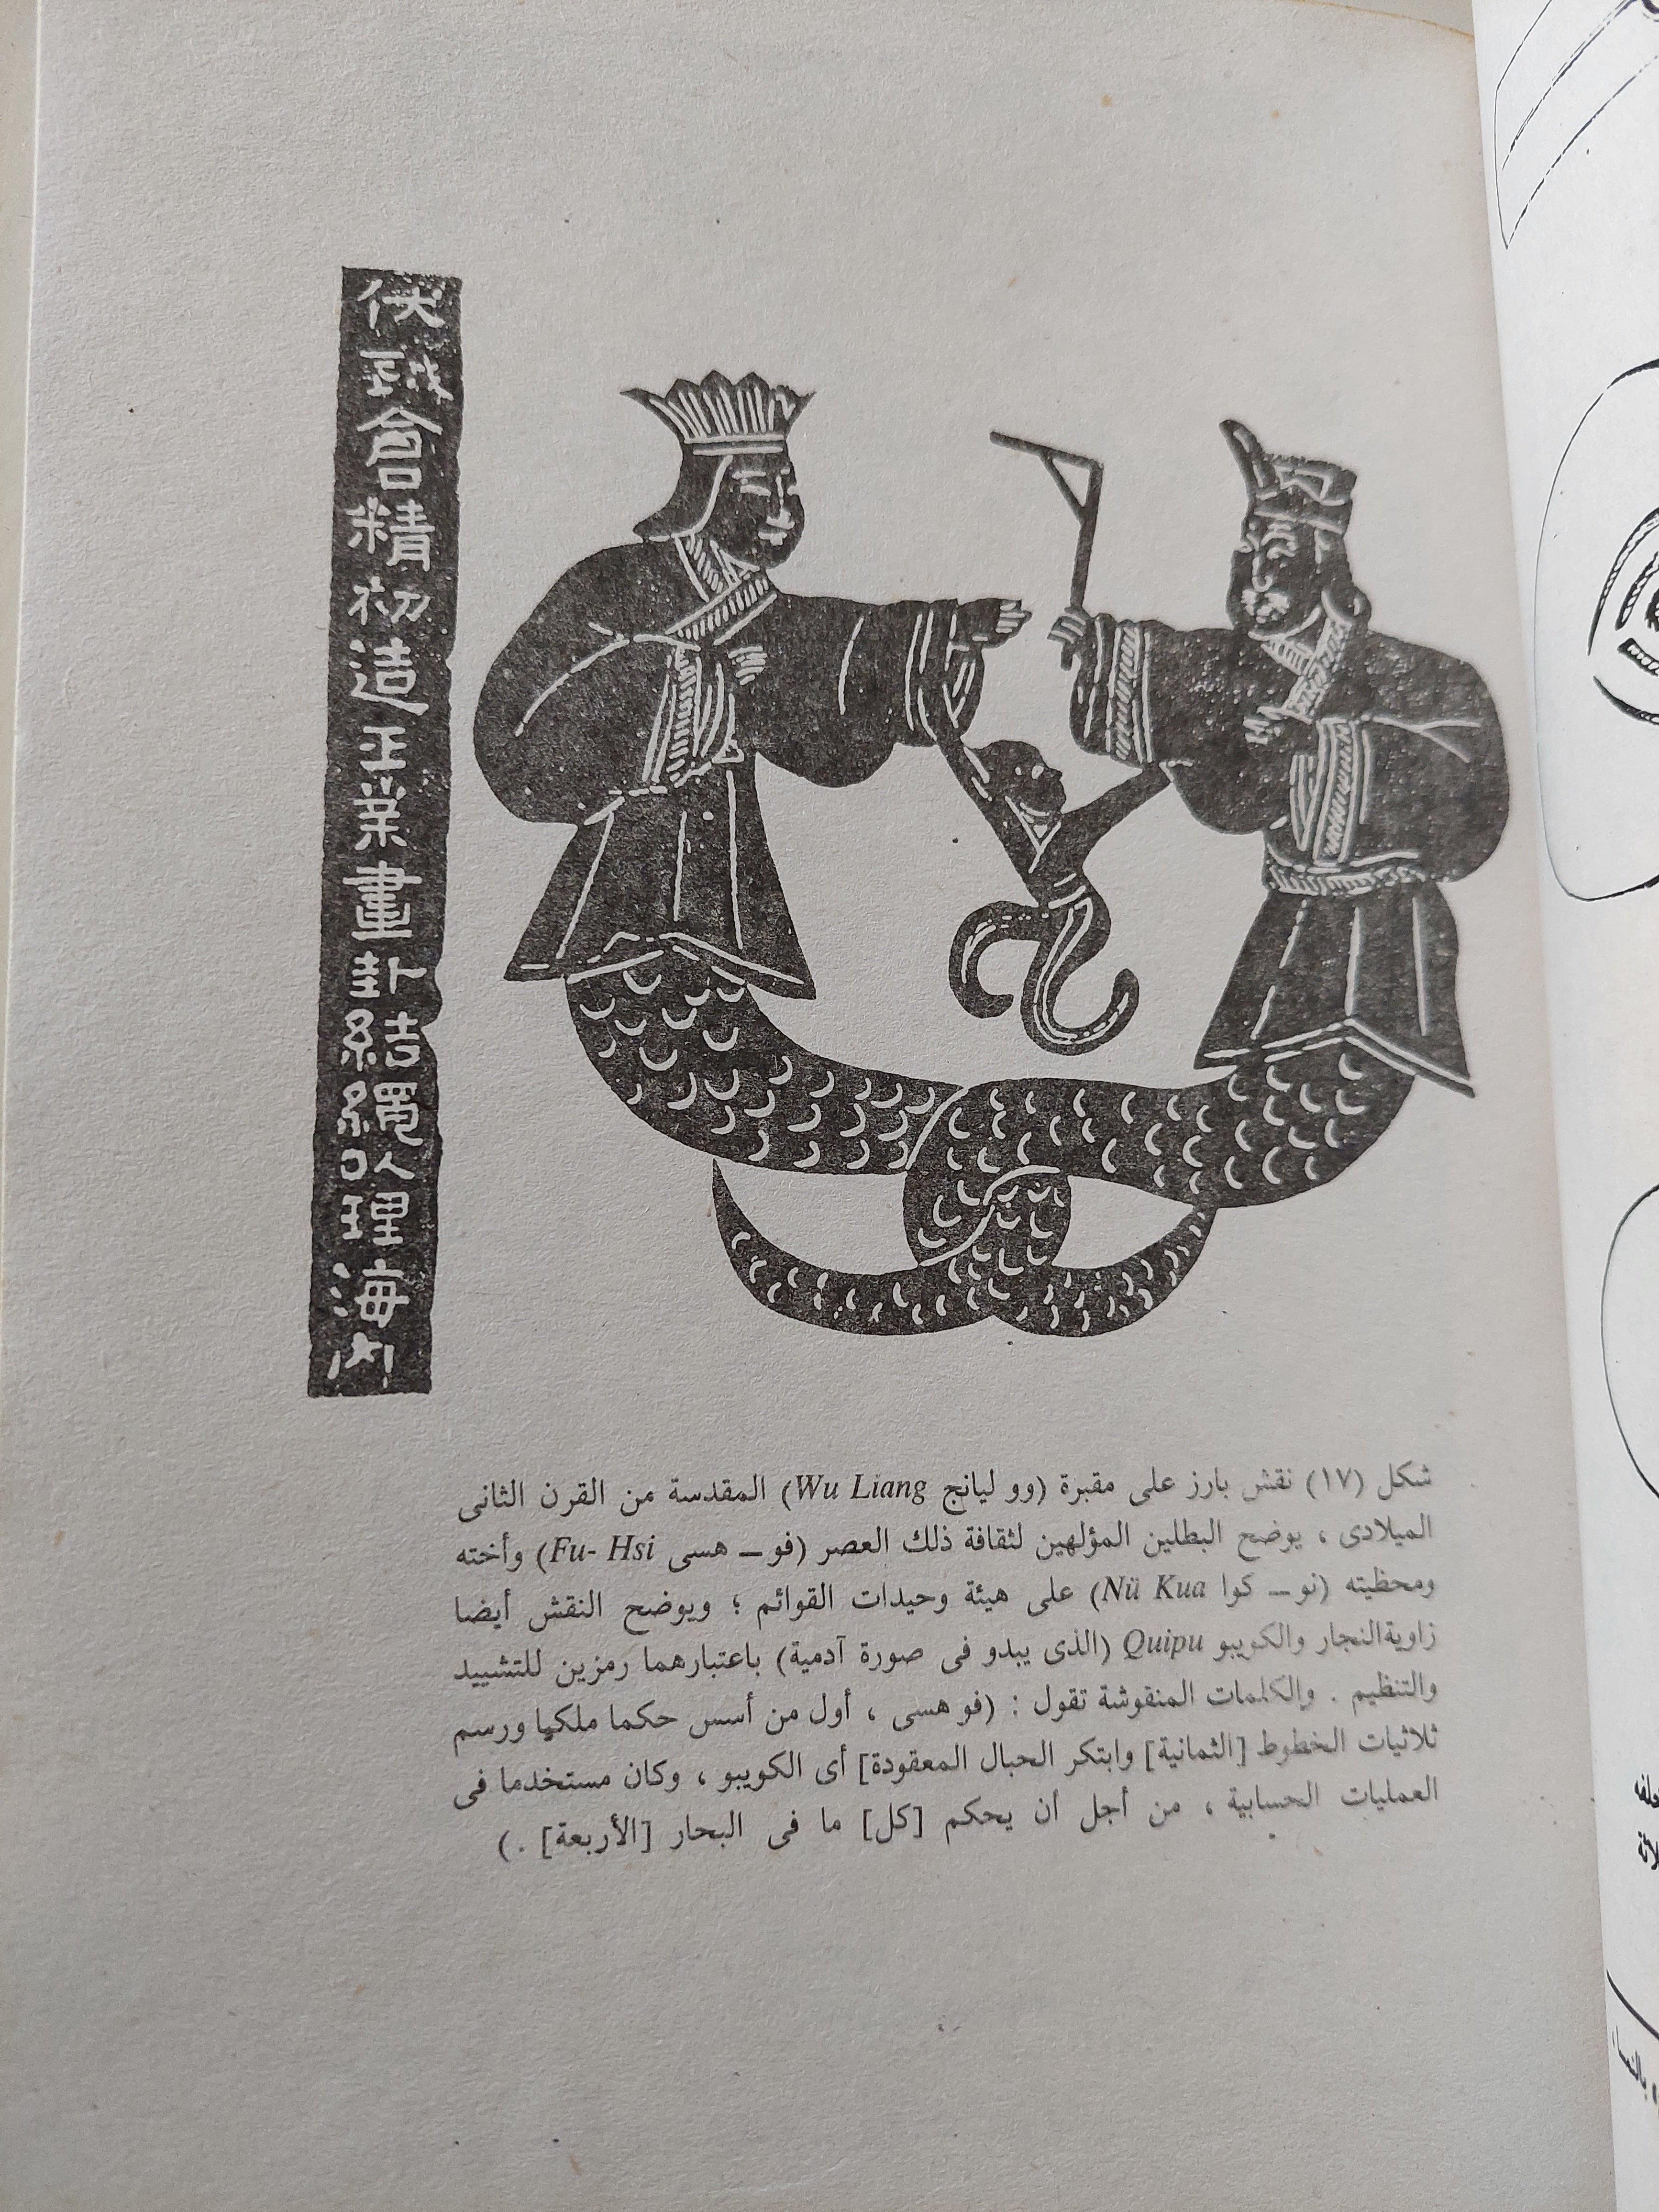 伏戲倉精初造王業畫卦結繩以理海內
شكل (١٧) نقش بارز على مقبرة (وو ليانج Wu Liang) المقدسة من القرن الثانى
الميلادى ، يوضح البطلين المؤلهين لثقافة ذلك العصر (فو ــ هسى Fu- Hsi) وأخته
ومحظيته (نو ــ كوا Nü Kua) على هيئة وحيدات القوائم ؛ ويوضح النقش أيضا
زاويةالنجار والكويبو Quipu (الذى يبدو فى صورة آدمية) باعتبارهما رمزين للتشييد
والتنظيم . والكلمات المنقوشة تقول : (فو هسى ، أول من أسس حكما ملكيا ورسم
ثلاثيات الخطوط [الثمانية] وابتكر الحبال المعقودة] أى الكويبو ، وكان مستخدما فى
العمليات الحسابية ، من أجل أن يحكم [كل] ما فى البحار [الأربعة] .)